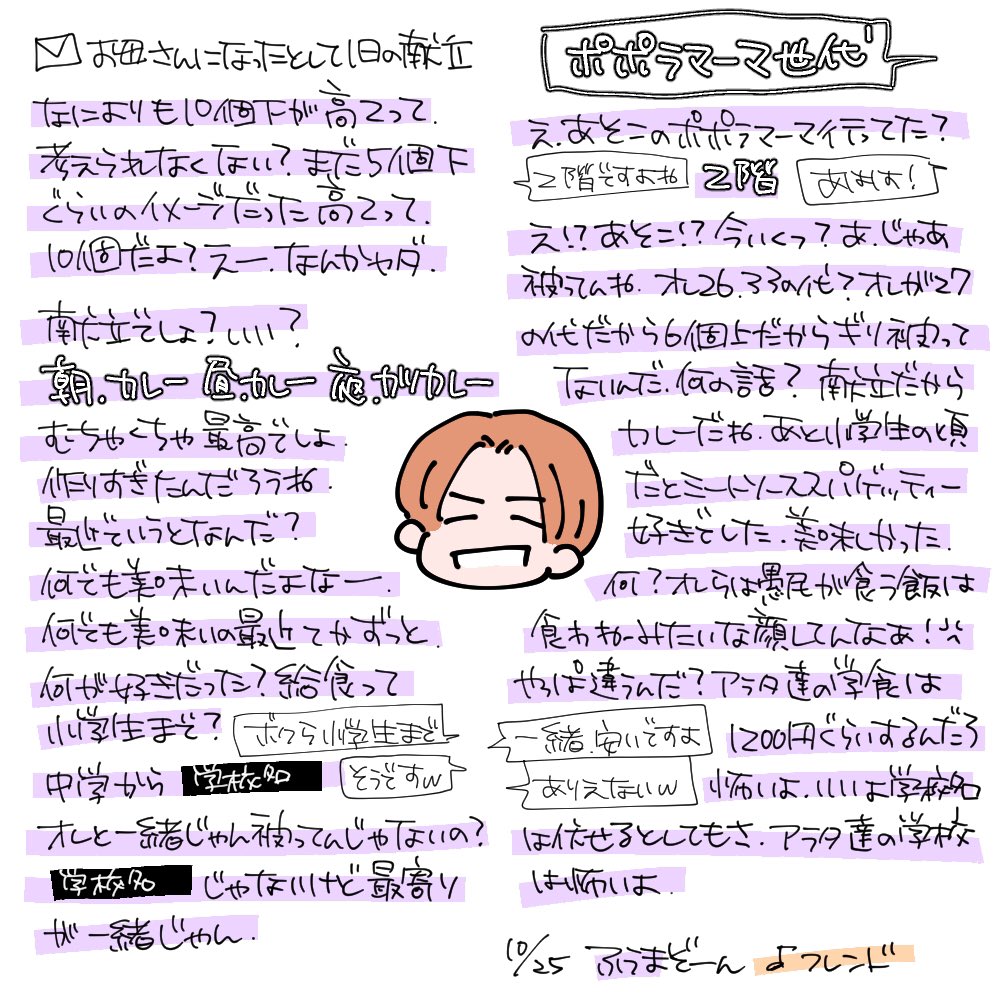 お母さんになったとして1日の献立
なによりも10個下が高2って.
考えられなくない?まだ5個下
ぐらいのイメージだった高2って.
10個だよ?えー.なんかヤダ.
献立でしょ?いい?
朝.カレー 昼.カレー 夜.ガリカレー
むちゃくちゃ最高でしょ.
作りすぎたんだろうね.
最近でいうとなんだ?
何でも美味いんだよなー.
何でも美味いの最近てかずっと.
何が好きだった?給食って
小学生まで?
ボクら小学生まで
中学から 学校名
そうですw
オレと一緒じゃん被ってんじゃないの?
学校名 じゃないけど最寄り
が一緒じゃん.
ポポラマーマ世代
え.あそこのポポラマーマ行ってた?
2階ですよね
2階
あはは!
え!?あそこ!?今いくつ?あ.じゃあ
被ってんね.オレ26.33の代?オレが27
の代だから6個上だからギリ被って
ないんだ.何の話?献立だから
カレーだね.あと小学生の頃
だとミートソーススパゲッティー
好きでした.美味しかった.
何?オレらは愚民が食う飯は
食わねーみたいな顔してんなあ!
やっぱ違うんだ?アラタ達の学食は
一緒.安いですよ
1200円ぐらいするんだろ
ありえないw
怖いよ.いいよ学校名
は伏せるとしてもさ.アラタ達の学校
は怖いよ.
10/25 ふうまぞーん よフレンド